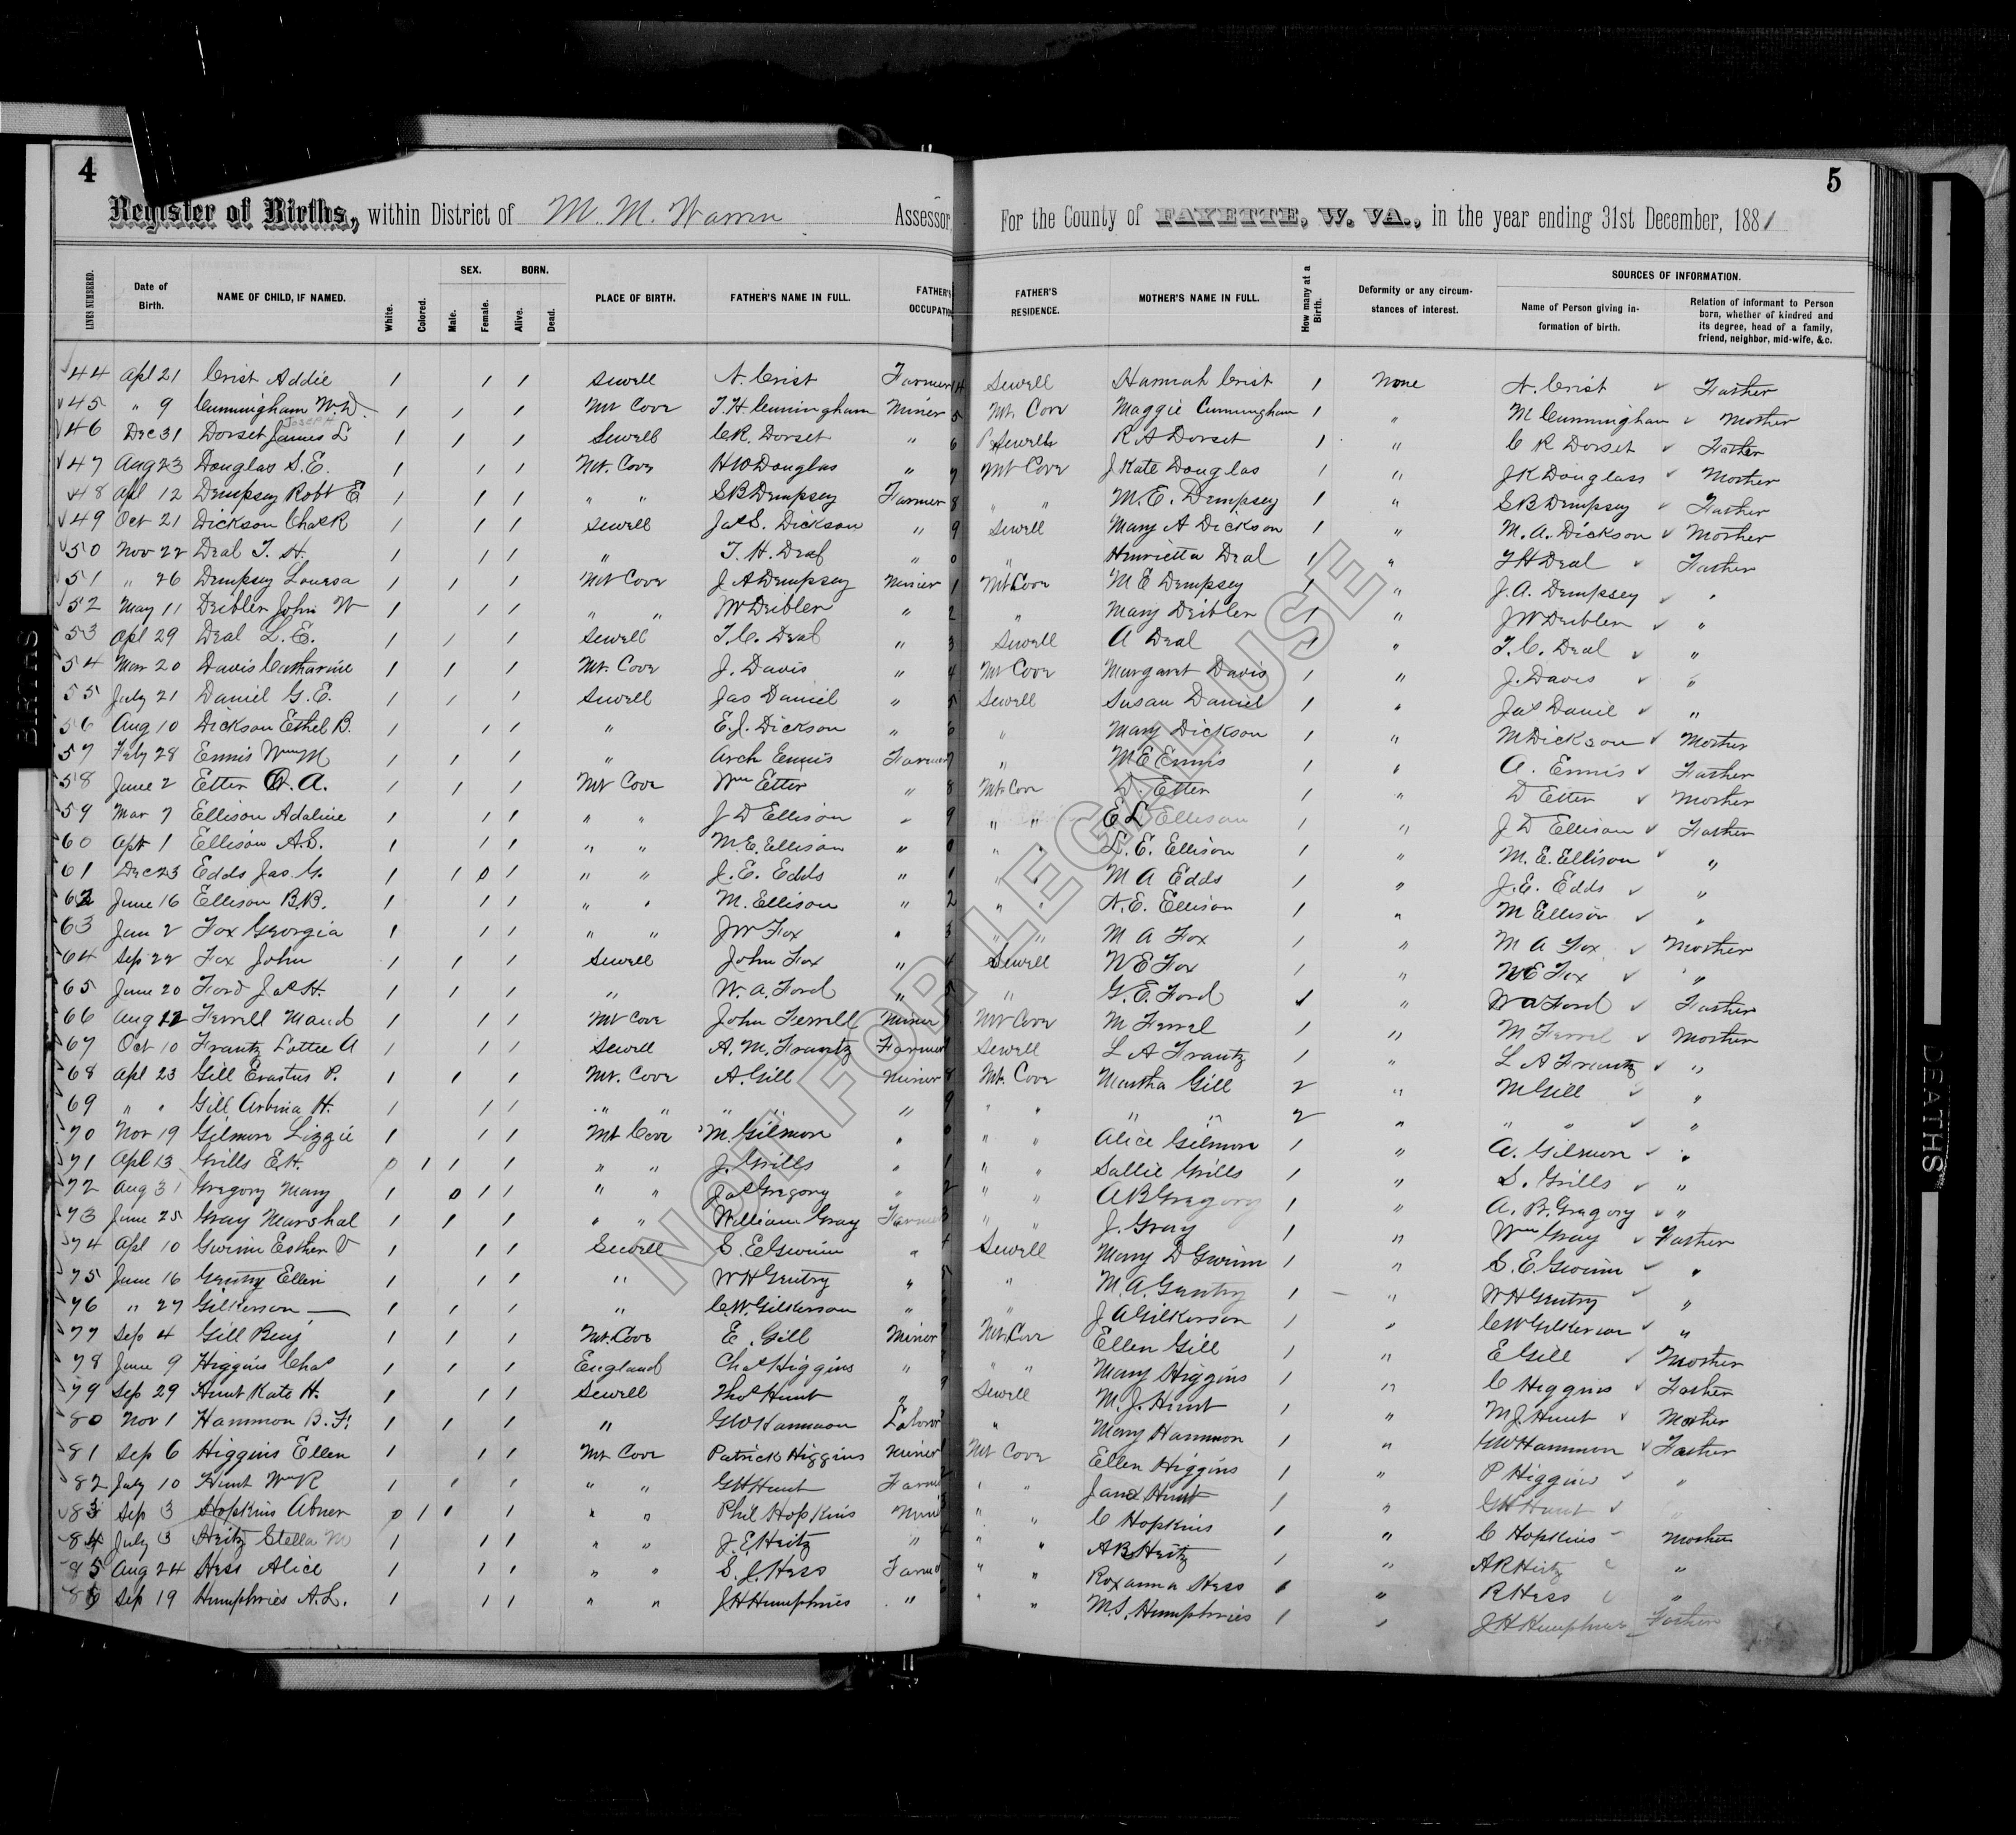 4
Register of Births, within District of M. M. Warren Assessor,
LINES NUMBERED. Date of Birth. NAME OF CHILD, IF NAMED. White. Colored. SEX. Male. Female. BORN. Alive. Dead. PLACE OF BIRTH. FATHER'S NAME IN FULL. FATHER'S OCCUPATION
5
For the County of FAYETTE, W. VA., in the year ending 31st December, 1881
FATHER'S RESIDENCE. MOTHER'S NAME IN FULL. How many at a Birth. Deformity or any circumstances of interest. SOURCES OF INFORMATION. Name of Person giving information of birth. Relation of informant to Person born, whether of kindred and its degree, head of a family, friend, neighbor, mid-wife, &c.
44 Apl 21 Crist Addie 1 1 1 Sewell N. Crist Farmer Sewell Hannah Crist 1 None N. Crist Father
45 " 9 Cunningham W.D. 1 1 1 Mt Cove T. H. Cunningham Miner Mt. Cove Maggie Cunningham 1 " M Cunningham Mother
46 Dec 31 Dorset James L Joseph 1 1 1 Sewell C.R. Dorset " Sewell R A Dorset 1 " C R Dorset Father
47 Aug 23 Douglas S.E. 1 1 1 Mt. Cove H W Douglas " Mt Cove J Kate Douglas 1 " J K Douglass Mother
48 Apl 12 Dempsey Robt E 1 1 1 " " S B Dempsey Farmer " " M. E. Dempsey 1 " S B Dempsey Father
49 Oct 21 Dickson Chas R 1 1 1 Sewell Jas S. Dickson " Sewell Mary A Dickson 1 " M. A. Dickson Mother
50 Nov 22 Deal T. H. 1 1 1 " T. H. Deal " " Henrietta Deal 1 " T H Deal Father
51 " 26 Dempsey Louesa 1 1 1 Mt Cove J A Dempsey Miner Mt Cove M E Dempsey 1 " J. A. Dempsey "
52 May 11 Deibler John W 1 1 1 " " J W Deibler " " Mary Deibler 1 " J W Deibler "
53 Apl 29 Deal L. E. 1 1 1 Sewell T. C. Deal " Sewell A Deal 1 " T. C. Deal "
54 Mar 20 Davis Catharine 1 1 1 Mt. Cove J. Davis " Mt Cove Margaret Davis 1 " J. Davis "
55 July 21 Daniel G. E. 1 1 1 Sewell Jas Daniel " Sewell Susan Daniel 1 " Jas Daniel "
56 Aug 10 Dickson Ethel B. 1 1 1 " E. J. Dickson " " Mary Dickson 1 " M Dickson Mother
57 Feby 28 Ennis Wm M 1 1 1 " Arch Ennis Farmer " M E Ennis 1 " A. Ennis Father
58 June 2 Etter A. 1 1 1 Mt Cove Wm Etter " Mt. Cove D. Etter 1 " D Etter Mother
59 Mar 7 Ellison Adaline 1 1 1 " " J D Ellison " " " E L Ellison 1 " J D Ellison Father
60 Apr 1 Ellison A.S. 1 1 1 " " M. E. Ellison " " " L. E. Ellison 1 " M. E. Ellison "
61 Dec 23 Edds Jas. 1 1 0 1 " " J. E. Edds " " " M A Edds 1 " J. E. Edds "
62 June 16 Ellison B.B. 1 1 1 " " M. Ellison " " " N. E. Ellison 1 " M Ellison "
63 Jan 2 Fox Georgia 1 1 1 " " J W Fox " " " M A Fox 1 " M A Fox Mother
64 Sep 22 Fox John 1 1 1 Sewell John Fox " Sewell N E Fox 1 " N E Fox "
65 June 20 Ford Jas H. 1 1 1 " W. A. Ford " " G. E. Ford 1 " W A Ford Father
66 Aug 12 Ferrell Maud 1 1 1 Mt Cove John Ferrell Miner Mt Cove M Ferrel 1 " M Ferrel Mother
67 Oct 10 Frantz Lottee A 1 1 1 Sewell A. M. Frantz Farmer Sewell L A Frantz 1 " L A Frantz "
68 Apl 23 Gill Erastus P. 1 1 1 Mt. Cove A. Gill Miner Mt. Cove Martha Gill 2 " M Gill "
69 " " Gill Arbina H. 1 1 1 " " " " " " " " " 2 " " " "
70 Nov 19 Gilmon Lizzie 1 1 1 Mt Cove M. Gilmon " " " Alice Gilmon 1 " A. Gilmon "
71 Apl 13 Grills E.H. 0 1 1 1 " " J. Grills " " " Sallie Grills 1 " S. Grills "
72 Aug 31 Gregory Mary 1 0 1 1 " " Jas Gregory " " " A B Gregory 1 " A. B. Gregory "
73 June 25 Gray Marshal 1 1 1 " " William Gray Farmer " " J. Gray 1 " Wm Gray Father
74 Apl 10 Gwinn Esther V 1 1 1 Sewell S. E Gwinn " Sewell Mary D Gwinn 1 " S. E. Gwinn "
75 June 16 Gentry Ellen 1 1 1 " W H Gentry " " M. A. Gentry 1 " W H Gentry "
76 " 27 Gilkerson — 1 1 1 " C. W. Gilkerson " " J A Gilkerson 1 " C W Gilkerson "
77 Sep 4 Gill Benj 1 1 1 Mt. Cove E. Gill Miner Mt. Cove Ellen Gill 1 " E Gill Mother
78 June 9 Higgins Chas 1 1 1 England Chas Higgins " " " Mary Higgins 1 " C Higgins Father
79 Sep 29 Hunt Kate H. 1 1 1 Sewell Thos Hunt " Sewell M. J. Hunt 1 " M J Hunt Mother
80 Nov 1 Hammon B. F. 1 1 1 " G W Hammon Labor " Mary Hammon 1 " G W Hammon Father
81 Sep 6 Higgins Ellen 1 1 1 Mt Cove Patrick Higgins Miner Mt Cove Ellen Higgins 1 " P Higgins "
82 July 10 Hunt Wm R 1 1 1 " " G H Hunt Farmer " " Jane Hunt 1 " G H Hunt "
83 Sep 3 Hopkins Abner 0 1 1 1 " " Phil Hopkins Miner " " C Hopkins 1 " C Hopkins Mother
84 July 3 Heitz Stella M 1 1 1 " " J. E. Heitz " " " A B Heitz 1 " Heitz "
85 Aug 24 Hess Alice 1 1 1 " " S. J. Hess Farmer " " Roxanna Hess 1 " R Hess "
86 Sep 19 Humphries A. L. 1 1 1 " " J H Humphries " " " M. S. Humphries 1 " J H Humphries Father
BIRTHS
DEATHS
NOT FOR LEGAL USE